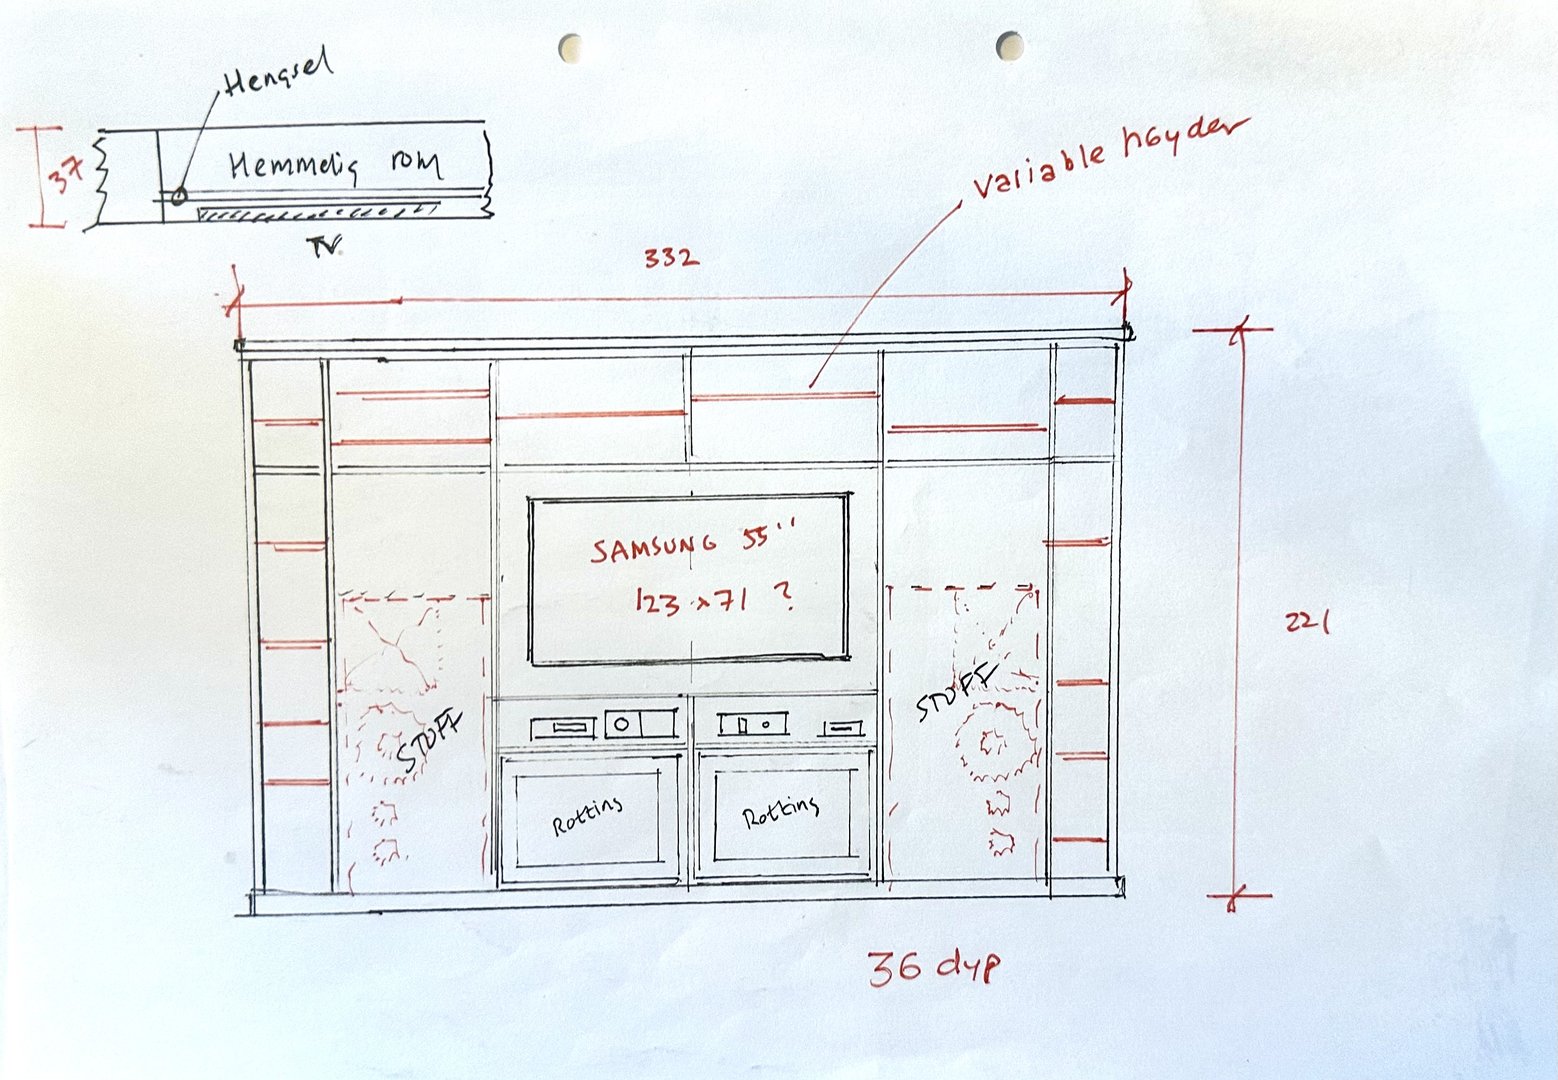 Hengsel
37
Hemmelig rom
TV.
Variable høyder
332
SAMSUNG 55''
123 x 71 ?
221
STOFF
STOFF
Rotting
Rotting
36 dyp